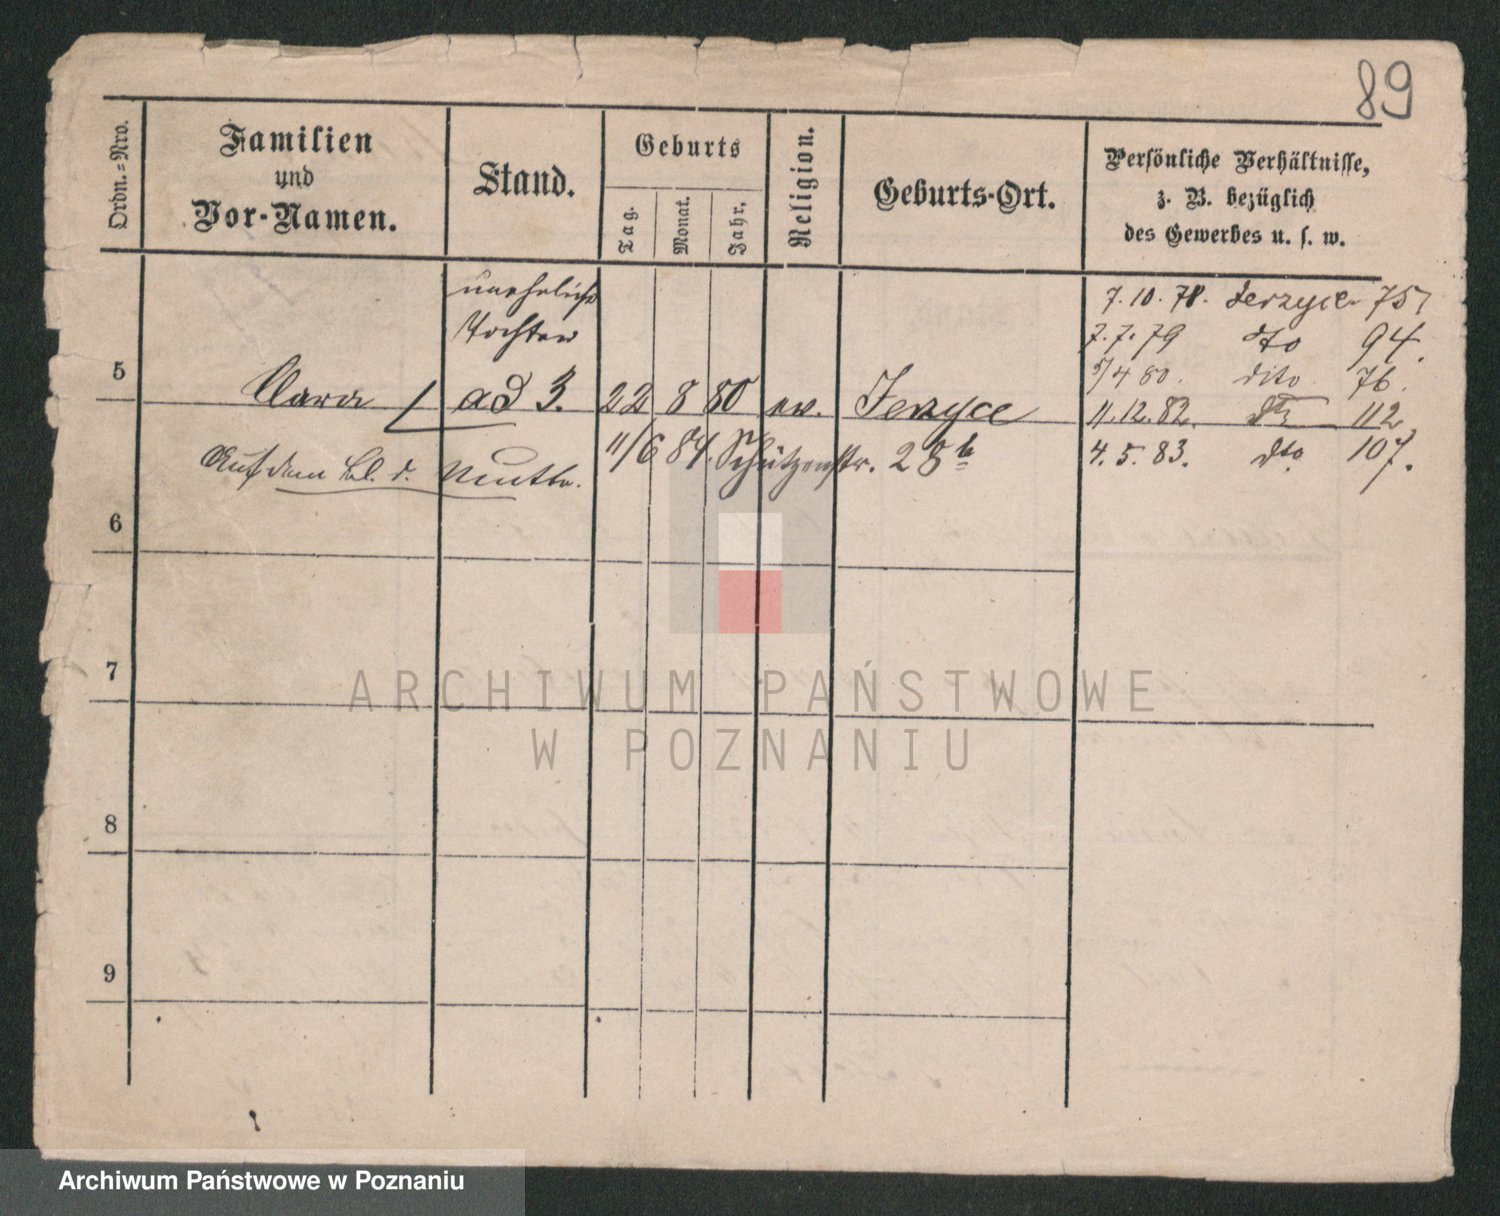 89
Ordn.=Nro.
Familien
und
Vor-Namen.
Stand.
Geburts
Tag.
Monat.
Jahr.
Religion.
Geburts-Ort.
Persönliche Verhältnisse,
z. B. bezüglich
des Gewerbes u. s. w.
uneheliche
Tochter
5 Clara ad 3. 22 8 80 ev. Jerzyce
Auf dem Bl. d. Mutter. 11/6 84. Schützenstr. 28b
7. 10. 78. Jerzyce 75
7. 7. 79 dto 94.
5/4 80. dito 76.
11. 12. 82. dto 112
4. 5. 83. dto 107.
6
7
8
9
ARCHIWUM PAŃSTWOWE
W POZNANIU
Archiwum Państwowe w Poznaniu